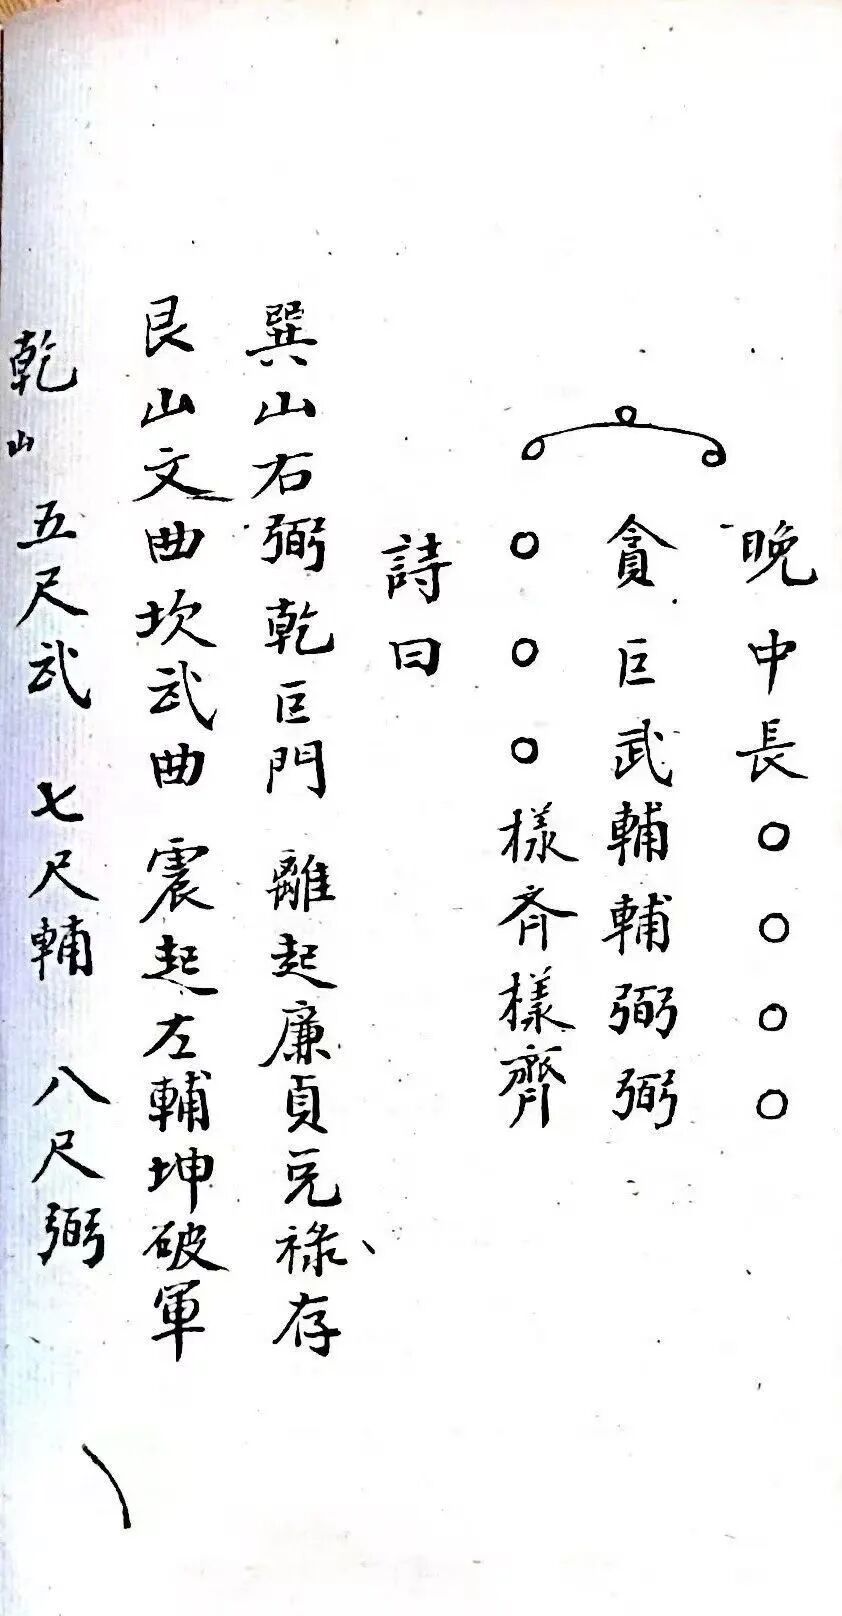 晚中長○○○○
貪巨武輔輔弼弼
○○○樣斉樣齊
詩曰
巽山右弼乾巨門 離起廉貞兑祿存
艮山文曲坎武曲 震起左輔坤破軍
乾山 五尺武 七尺輔 八尺弼